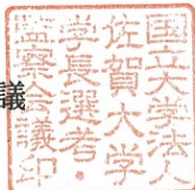 国立大学法人
佐賀大学
学長選考・
監察会議印
議